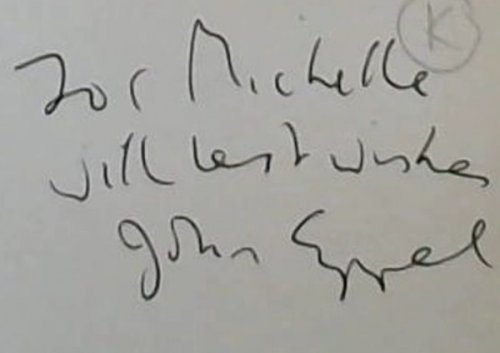 K
For Michelle
with best wishes
John Eppel